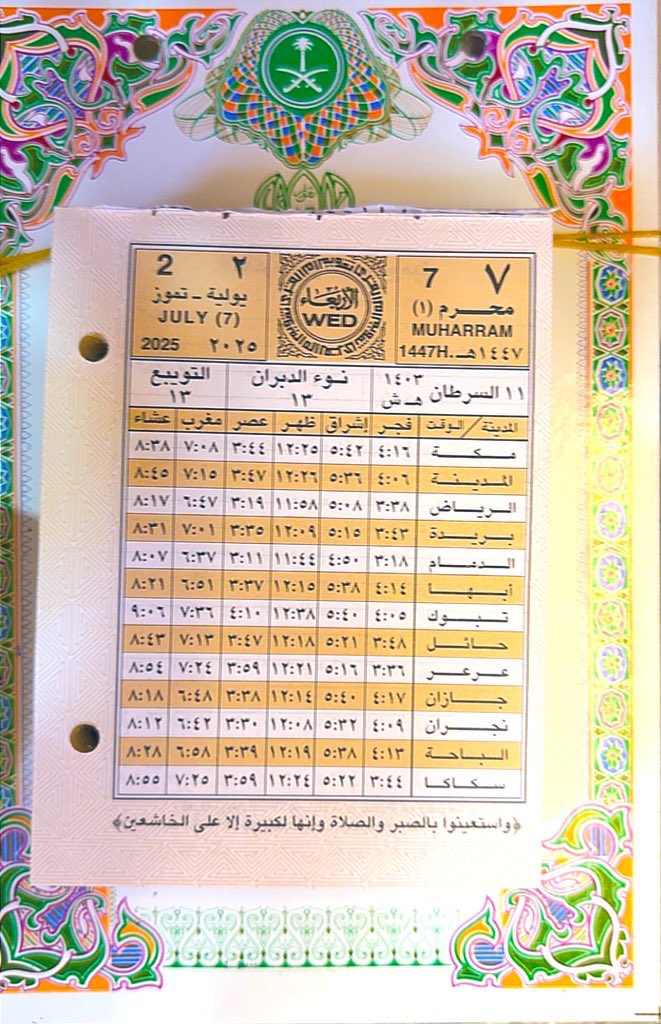 ٧ 7
محرم (١)
MUHARRAM
1447H. ١٤٤٧هـ
الأربعاء
WED
2 ٢
يولية - تموز
JULY (7)
2025 ٢٠٢٥
١١ السرطان ١٤٠٣ هـ ش
نوء الدبران
١٣
التويبع
١٣
المدينة / الوقت فجر إشراق ظهر عصر مغرب عشاء
مكة ٤:١٦ ٥:٤٢ ١٢:٢٥ ٣:٤٤ ٧:٠٨ ٨:٣٨
المدينة ٤:٠٦ ٥:٣٦ ١٢:٢٦ ٣:٤٧ ٧:١٥ ٨:٤٥
الرياض ٣:٣٨ ٥:٠٨ ١١:٥٨ ٣:١٩ ٦:٤٧ ٨:١٧
بريدة ٣:٤٣ ٥:١٥ ١٢:٠٩ ٣:٣٥ ٧:٠١ ٨:٣١
الدمام ٣:١٨ ٤:٥٠ ١١:٤٤ ٣:١١ ٦:٣٧ ٨:٠٧
أبها ٤:١٤ ٥:٣٨ ١٢:١٥ ٣:٣٧ ٦:٥١ ٨:٢١
تبوك ٤:٠٥ ٥:٤٠ ١٢:٣٨ ٤:١٠ ٧:٣٦ ٩:٠٦
حائل ٣:٤٨ ٥:٢١ ١٢:١٨ ٣:٤٧ ٧:١٣ ٨:٤٣
عرعر ٣:٣٦ ٥:١٦ ١٢:٢١ ٣:٥٩ ٧:٢٤ ٨:٥٤
جازان ٤:١٧ ٥:٤٠ ١٢:١٤ ٣:٣٨ ٦:٤٨ ٨:١٨
نجران ٤:٠٩ ٥:٣٢ ١٢:٠٨ ٣:٣٠ ٦:٤٢ ٨:١٢
الباحة ٤:١٣ ٥:٣٨ ١٢:١٩ ٣:٣٩ ٦:٥٨ ٨:٢٨
سكاكا ٣:٤٤ ٥:٢٢ ١٢:٢٤ ٣:٥٩ ٧:٢٥ ٨:٥٥
﴿واستعينوا بالصبر والصلاة وإنها لكبيرة إلا على الخاشعين﴾